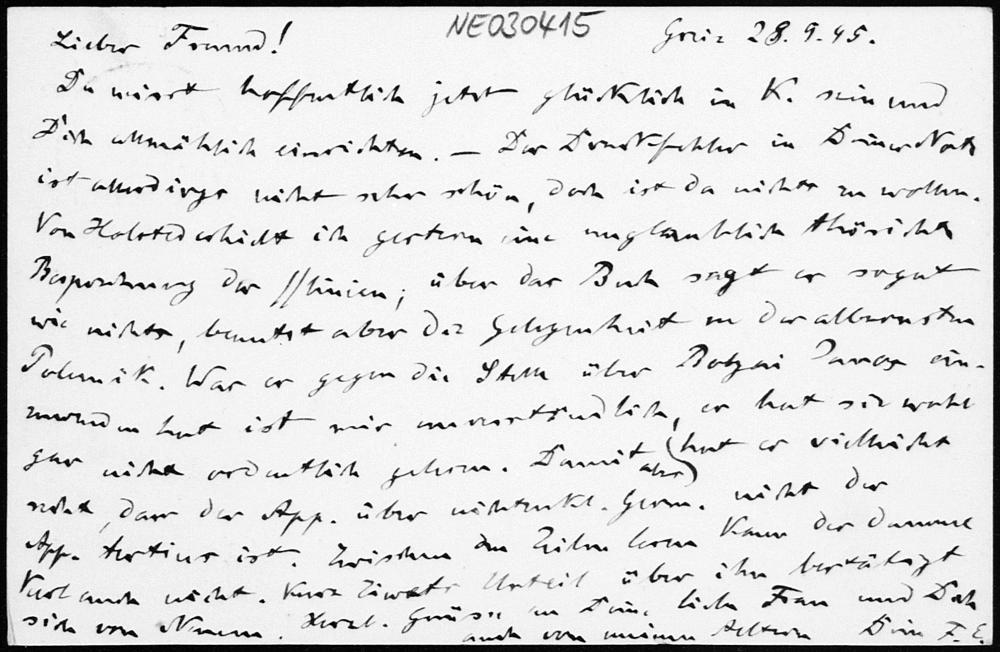 NE030415
Lieber Freund! Graz 28.9.45.
Du wirst hoffentlich jetzt glücklich in K. sein und
Dich allmählich einrichten. — Der Druckfehler in Deiner Note
ist allerdings nicht sehr schön, doch ist da nichts zu wollen.
Von erhielt ich gestern eine unglaublich thörichte
Besprechung der //linien; über das Buch sagt er sogut
wie nichts, benutzt aber die Gelegenheit zu der albernsten
Polemik. Was er gegen die Stelle über ein-
zuwenden hat ist mir unverständlich, er hat sie wohl
gar nicht ordentlich gelesen. Damit aber (hat er vielleicht
recht, dass der App. über nichteukl. Geom. nicht der
App. tertius ist. Zwischen den Zeilen lesen kann der dumme
Kerl auch nicht. Kurz Urteil über ihn bestätigt
sich von Neuem. Herzl. Grüsse an Deine liebe Frau und Dich
auch von meinen Aeltern Dein F. E.